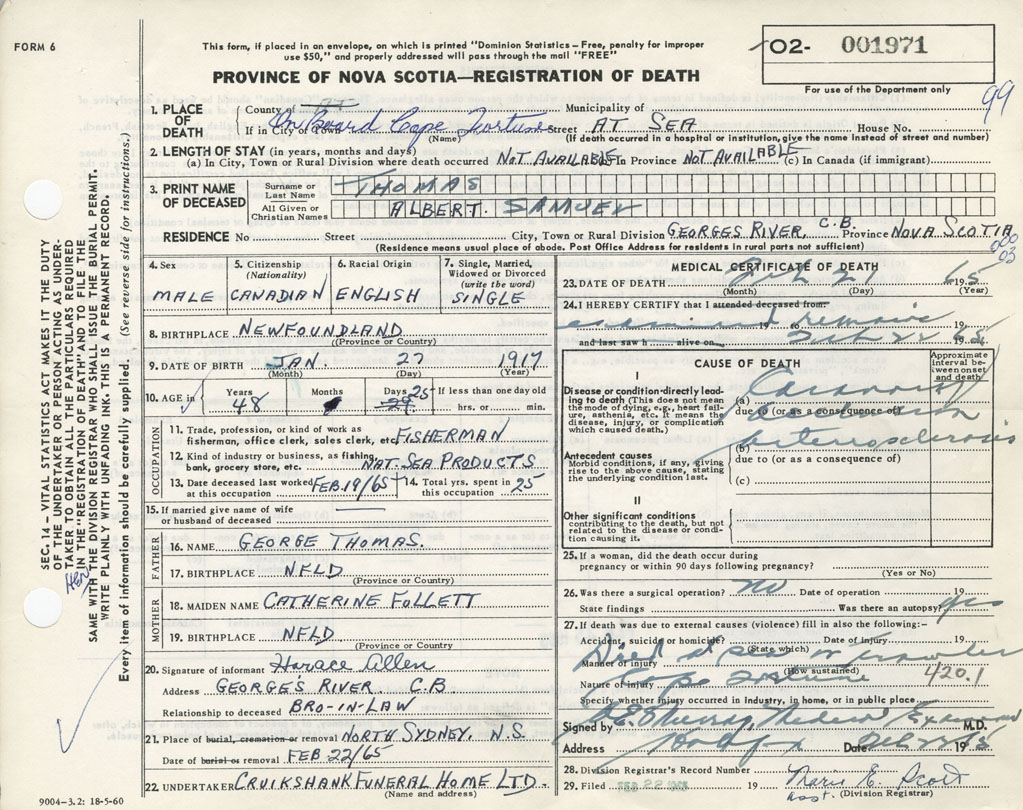 FORM 6
This form, if placed in an envelope, on which is printed "Dominion Statistics – Free, penalty for improper
use $50," and properly addressed will pass through the mail "FREE"
PROVINCE OF NOVA SCOTIA—REGISTRATION OF DEATH
02- 001971
For use of the Department only
99
SEC. 14 – VITAL STATISTICS ACT MAKES IT THE DUTY
OF THE UNDERTAKER OR PERSON ACTING AS UNDER-
TAKER TO OBTAIN ALL THE PARTICULARS REQUIRED
IN THE "REGISTRATION OF DEATH" AND TO FILE THE
SAME WITH THE DIVISION REGISTRAR WHO SHALL ISSUE THE BURIAL PERMIT.
WRITE PLAINLY WITH UNFADING INK. THIS IS A PERMANENT RECORD.
Every item of information should be carefully supplied. (See reverse side for instructions.)
1. PLACE OF DEATH
County of Municipality of
If in City or Town On Board Cape Fortune Street AT SEA House No.
(Name) (If death occurred in a hospital or institution, give the name instead of street and number)
2. LENGTH OF STAY (in years, months and days)
(a) In City, Town or Rural Division where death occurred NOT AVAILABLE In Province NOT AVAILABLE (c) In Canada (if immigrant)
3. PRINT NAME OF DECEASED
Surname or Last Name THOMAS
All Given or Christian Names ALBERT. SAMUEL
RESIDENCE No Street City, Town or Rural Division GEORGES RIVER, C.B. Province NOVA SCOTIA
(Residence means usual place of abode. Post Office Address for residents in rural parts not sufficient)
000
03
4. Sex MALE
5. Citizenship (Nationality) CANADIAN
6. Racial Origin ENGLISH
7. Single, Married, Widowed or Divorced (write the word) SINGLE
8. BIRTHPLACE NEWFOUNDLAND
(Province or Country)
9. DATE OF BIRTH JAN. 27 1917
(Month) (Day) (Year)
10. AGE in Years 48 Months Days 25 If less than one day old hrs. or min.
OCCUPATION
11. Trade, profession, or kind of work as
fisherman, office clerk, sales clerk, etc. FISHERMAN
12. Kind of industry or business, as fishing,
bank, grocery store, etc. NAT. SEA PRODUCTS
13. Date deceased last worked at this occupation FEB 19/65 14. Total yrs. spent in this occupation 25
15. If married give name of wife
or husband of deceased
FATHER
16. NAME GEORGE THOMAS.
17. BIRTHPLACE NFLD
(Province or Country)
MOTHER
18. MAIDEN NAME CATHERINE FOLLETT
19. BIRTHPLACE NFLD
(Province or Country
20. Signature of informant Horace Allen
Address GEORGE'S RIVER. C.B
Relationship to deceased BRO-IN-LAW
21. Place of burial, cremation or removal NORTH SYDNEY. N.S.
Date of burial or removal FEB 22/65
22. UNDERTAKER CRUIKSHANK FUNERAL HOME LTD.
(Name and address)
9004–3.2: 18-5-60
MEDICAL CERTIFICATE OF DEATH
23. DATE OF DEATH Feb 21 1965
(Month) (Day) (Year)
24. I HEREBY CERTIFY that I attended deceased from:
examined remains 19 to 19
and last saw h alive on Feb 22 1965
CAUSE OF DEATH
Approximate interval between onset and death
I
Disease or condition directly leading to death (This does not mean
the mode of dying, e.g., heart failure, asthenia, etc. It means the
disease, injury, or complication which caused death.)
(a) Coronary
due to (or as a consequence of)
Antecedent causes
Morbid conditions, if any, giving rise to the above cause, stating
the underlying condition last.
(b)
due to (or as a consequence of)
(c)
II
Other significant conditions
contributing to the death, but not related to the disease or condition causing it.
25. If a woman, did the death occur during
pregnancy or within 90 days following pregnancy?
(Yes or No)
26. Was there a surgical operation? No Date of operation 19
State findings Was there an autopsy? yes
27. If death was due to external causes (violence) fill in also the following:-
Accident, suicide or homicide? Date of injury 19
(State which)
Died at sea on trawler
Manner of injury
(How sustained)
Nature of injury Cape Fortune 420.1
Specify whether injury occurred in industry, in home, or in public place
Signed by Medical Examiner M.D.
Address Halifax Date Feb 22 1965
28. Division Registrar's Record Number
29. Filed FEB 22 19 Marie E. Scott
asst. (Division Registrar)